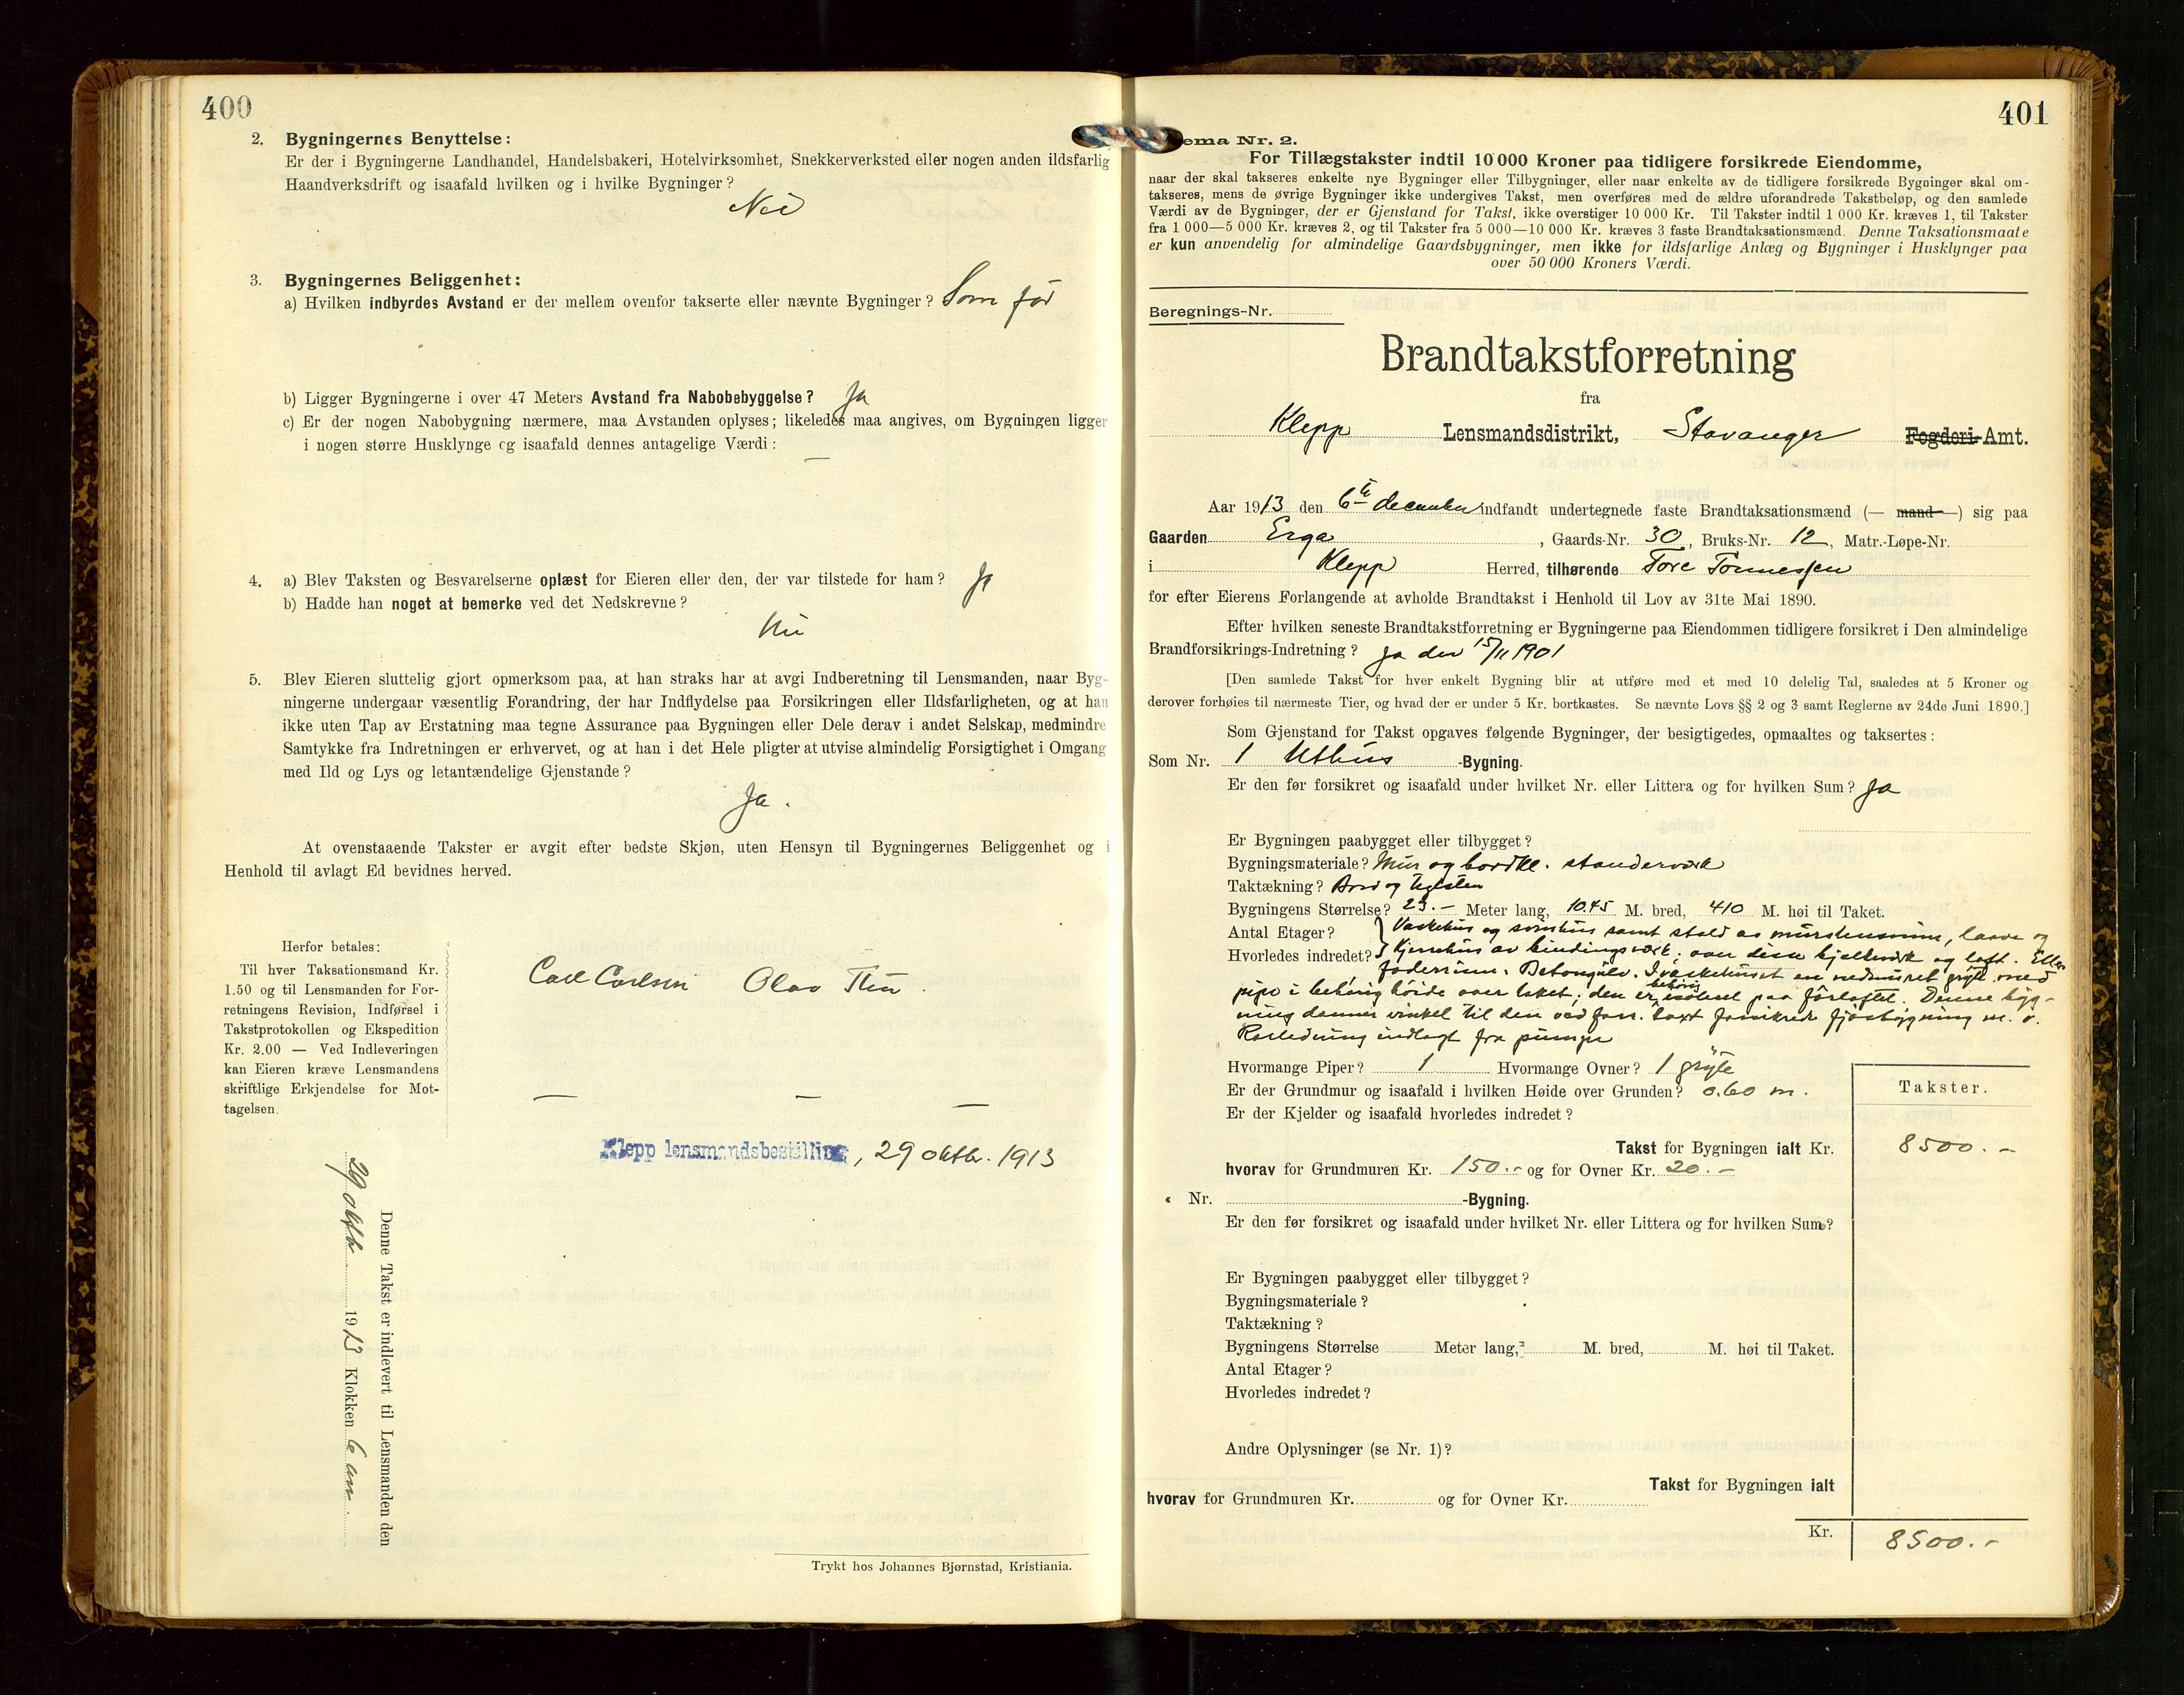 400
2. Bygningernes Benyttelse:
Er der i Bygningerne Landhandel, Handelsbakeri, Hotelvirksomhet, Snekkerverksted eller nogen anden ildsfarlig
Haandverksdrift og isaafald hvilken og i hvilke Bygninger?
Nei
3. Bygningernes Beliggenhet:
a) Hvilken indbyrdes Avstand er der mellem ovenfor takserte eller nævnte Bygninger? Som før
b) Ligger Bygningerne i over 47 Meters Avstand fra Nabobebyggelse? Ja
c) Er der nogen Nabobygning nærmere, maa Avstanden oplyses; likeledes maa angives, om Bygningen ligger
i nogen større Husklynge og isaafald dennes antagelige Værdi: —
4. a) Blev Taksten og Besvarelserne oplæst for Eieren eller den, der var tilstede for ham? Ja
b) Hadde han noget at bemerke ved det Nedskrevne?
Nei
5. Blev Eieren sluttelig gjort opmerksom paa, at han straks har at avgi Indberetning til Lensmanden, naar Byg-
ningerne undergaar væsentlig Forandring, der har Indflydelse paa Forsikringen eller Ildsfarligheten, og at han
ikke uten Tap av Erstatning maa tegne Assurance paa Bygningen eller Dele derav i andet Selskap, medmindre
Samtykke fra Indretningen er erhvervet, og at han i det Hele pligter at utvise almindelig Forsigtighet i Omgang
med Ild og Lys og letantændelige Gjenstande?
Ja.
At ovenstaaende Takster er avgit efter bedste Skjøn, uten Hensyn til Bygningernes Beliggenhet og i
Henhold til avlagt Ed bevidnes herved.
Herfor betales:
Til hver Taksationsmand Kr.
1.50 og til Lensmanden for For-
retningens Revision, Indførsel i
Takstprotokollen og Ekspedition
Kr. 2.00 — Ved Indleveringen
kan Eieren kræve Lensmandens
skriftlige Erkjendelse for Mot-
tagelsen.
Carl Carlsen Olav Thu
— — —
Klepp lensmandsbestilling, 29 oktbr. 1913
Denne Takst er indlevert til Lensmanden den
29 oktb. 1913 Klokken 6 am.
Trykt hos Johannes Bjørnstad, Kristiania.
401
ema Nr. 2.
For Tillægstakster indtil 10 000 Kroner paa tidligere forsikrede Eiendomme,
naar der skal takseres enkelte nye Bygninger eller Tilbygninger, eller naar enkelte av de tidligere forsikrede Bygninger skal om-
takseres, mens de øvrige Bygninger ikke undergives Takst, men overføres med de ældre uforandrede Takstbeløp, og den samlede
Værdi av de Bygninger, der er Gjenstand for Takst, ikke overstiger 10 000 Kr. Til Takster indtil 1 000 Kr. kræves 1, til Takster
fra 1 000—5 000 Kr. kræves 2, og til Takster fra 5 000—10 000 Kr. kræves 3 faste Brandtaksationsmænd. Denne Taksationsmaate
er kun anvendelig for almindelige Gaardsbygninger, men ikke for ildsfarlige Anlæg og Bygninger i Husklynger paa
over 50 000 Kroners Værdi.
Beregnings-Nr.
Brandtakstforretning
fra
Klepp Lensmandsdistrikt, Stavanger Fogderi-Amt.
Aar 1913 den 6te december indfandt undertegnede faste Brandtaksationsmænd (— mand —) sig paa
Gaarden Erga, Gaards-Nr. 30, Bruks-Nr. 12, Matr.-Løpe-Nr.
i Klepp Herred, tilhørende Tore Tønnessen
for efter Eierens Forlangende at avholde Brandtakst i Henhold til Lov av 31te Mai 1890.
Efter hvilken seneste Brandtakstforretning er Bygningerne paa Eiendommen tidligere forsikret i Den almindelige
Brandforsikrings-Indretning? Ja den 15/11 1901
[Den samlede Takst for hver enkelt Bygning blir at utføre med et med 10 delelig Tal, saaledes at 5 Kroner og
derover forhøies til nærmeste Tier, og hvad der er under 5 Kr. bortkastes. Se nævnte Lovs §§ 2 og 3 samt Reglerne av 24de Juni 1890.]
Som Gjenstand for Takst opgaves følgende Bygninger, der besigtigedes, opmaaltes og taksertes:
Som Nr. 1 Uthus -Bygning.
Er den før forsikret og isaafald under hvilket Nr. eller Littera og for hvilken Sum? Ja
Er Bygningen paabygget eller tilbygget?
Bygningsmateriale? Mur og bordkl. standerværk
Taktækning? Bord og teglsten
Bygningens Størrelse? 23.— Meter lang, 10.45 M. bred, 410 M. høi til Taket.
Antal Etager? Vaskehus og svinehus samt stald av murstensmur, laave og
Hvorledes indredet? Kjørrehus av bindingsværk; over disse bjelkeværk og loft.
foderrum. Betongulv. I vaskehuset en nedmuret gryte med
pipe i behørig høide over taket; den er behørig isoleret paa fôrloftet. Denne byg-
ning danner vinkel til den ved forr. taxt forsikrede fjøsbygning m. v.
Rørledning indlagt fra pumpe
Hvormange Piper? 1 Hvormange Ovner? 1 gryte
Er der Grundmur og isaafald i hvilken Høide over Grunden? 0.60 m.
Er der Kjelder og isaafald hvorledes indredet?
Takster.
Takst for Bygningen ialt Kr. 8500.-
hvorav for Grundmuren Kr. 150.- og for Ovner Kr. 20.-
« Nr. -Bygning.
Er den før forsikret og isaafald under hvilket Nr. eller Littera og for hvilken Sum?
Er Bygningen paabygget eller tilbygget?
Bygningsmateriale?
Taktækning?
Bygningens Størrelse Meter lang, M. bred, M. høi til Taket.
Antal Etager?
Hvorledes indredet?
Andre Oplysninger (se Nr. 1)?
Takst for Bygningen ialt
hvorav for Grundmuren Kr. og for Ovner Kr.
Kr. 8500.-